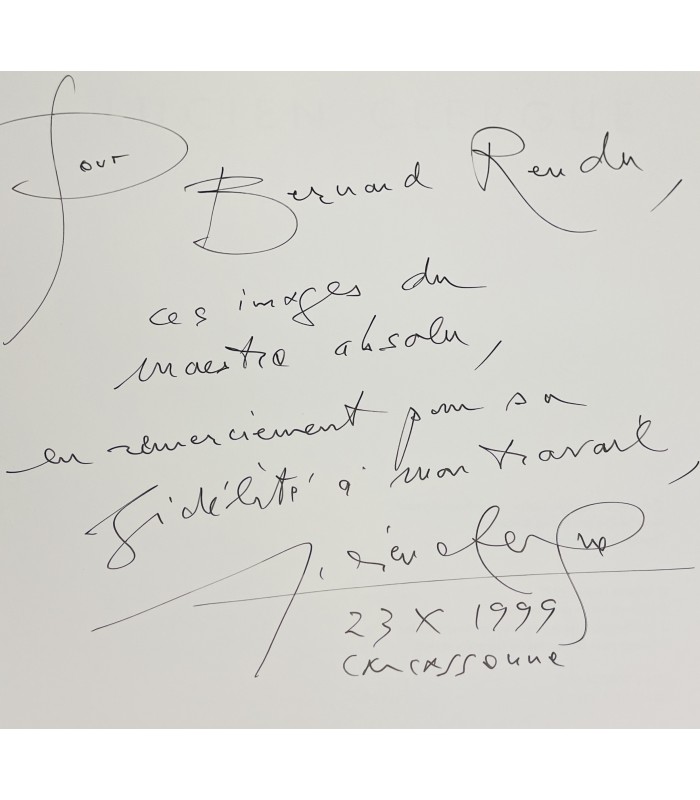 Pour
Bernard Rendu,
ces images du
maestro absolu,
en remerciement pour sa
fidélité à mon travail,
Lucien Clergue
23 X 1999
Carcassonne